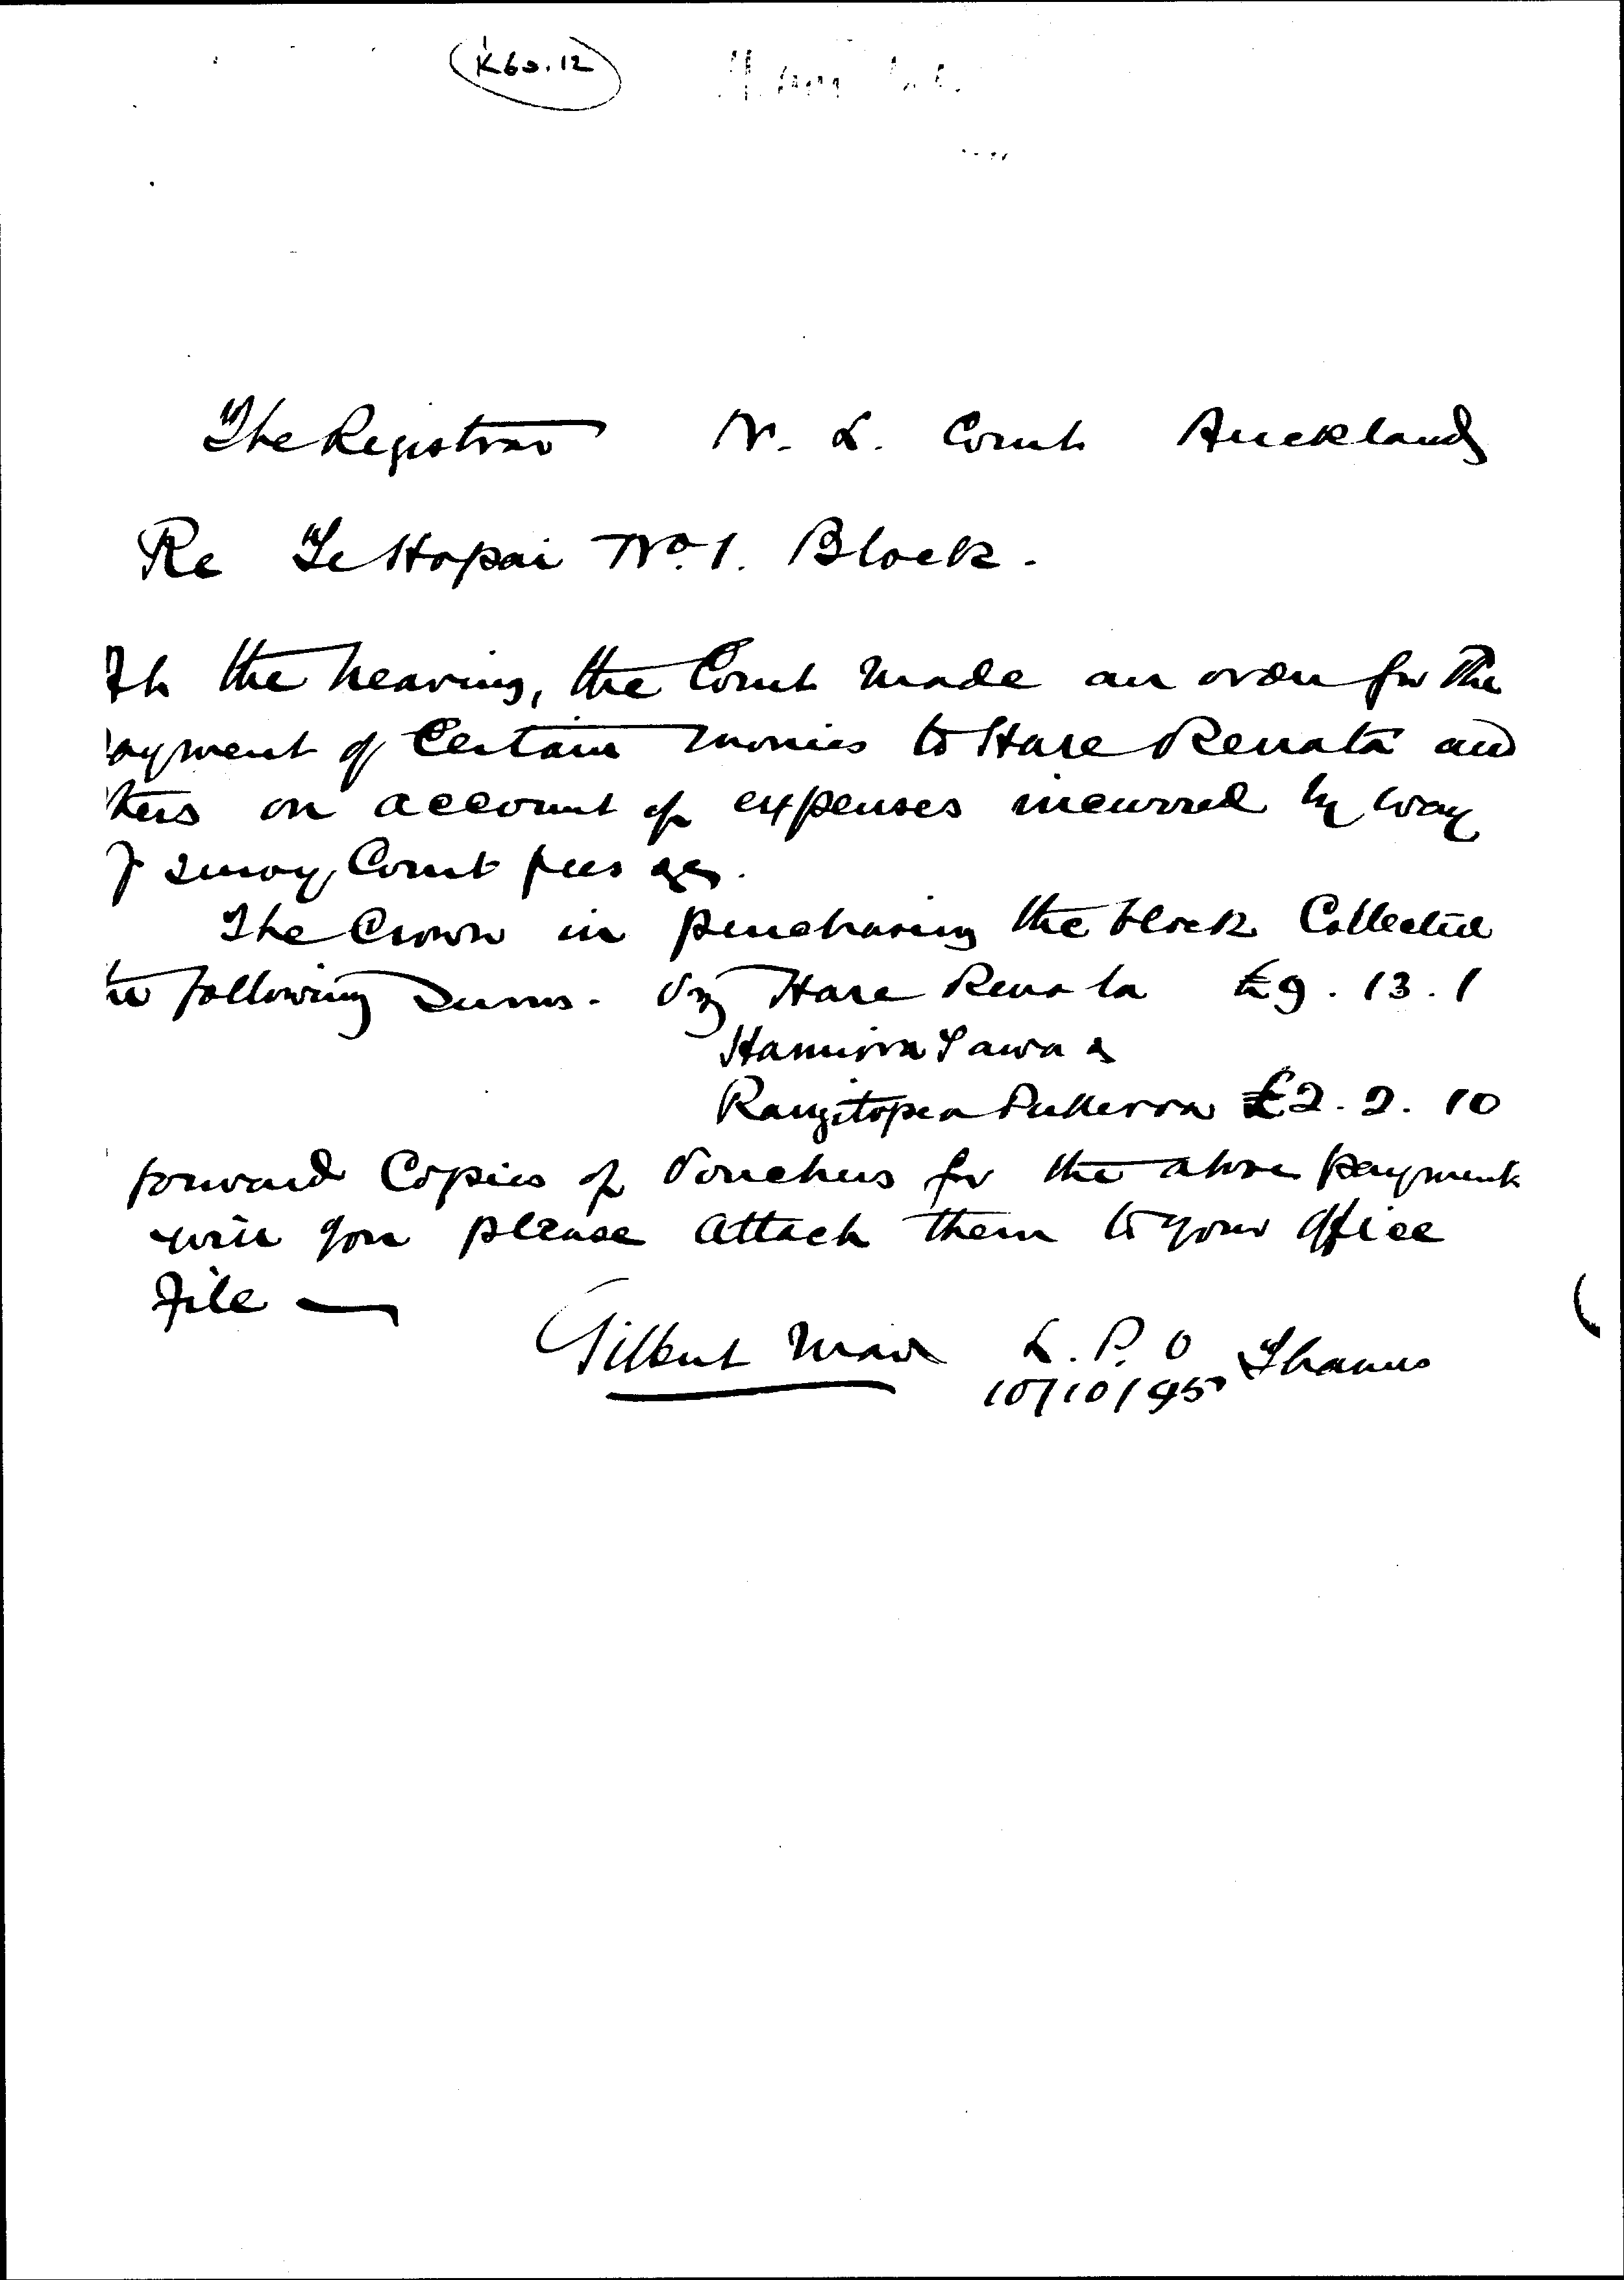 K60.12
The Registrar N. L. Court Auckland
Re Te Hopai No. 1. Block.
At the hearing, the Court made an order for the
ayment of Certain monies to Hare Renata and
thers on account of expenses incurred by way
f survey, Court fees &c.
The Crown in purchasing the block Collected
the following sums. Viz Hare Renata £9.13.1
Hamiora Tawa &
Rangitopea £2.2.10
forward Copies of Vouchers for the above payment
will you please attach them to your office
File —
Gilbert Mair L.P.O Thames
10/10/95